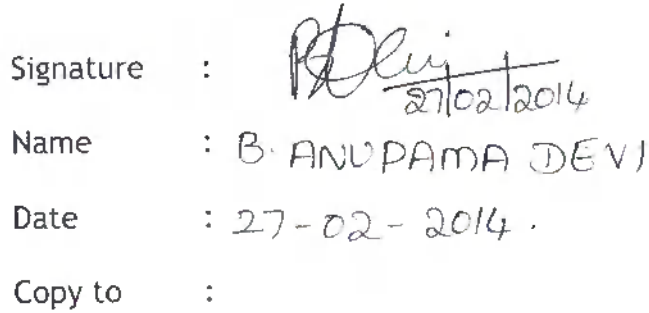 Signature :
27/02/2014
Name : B. ANUPAMA DEVI
Date : 27-02-2014.
Copy to :